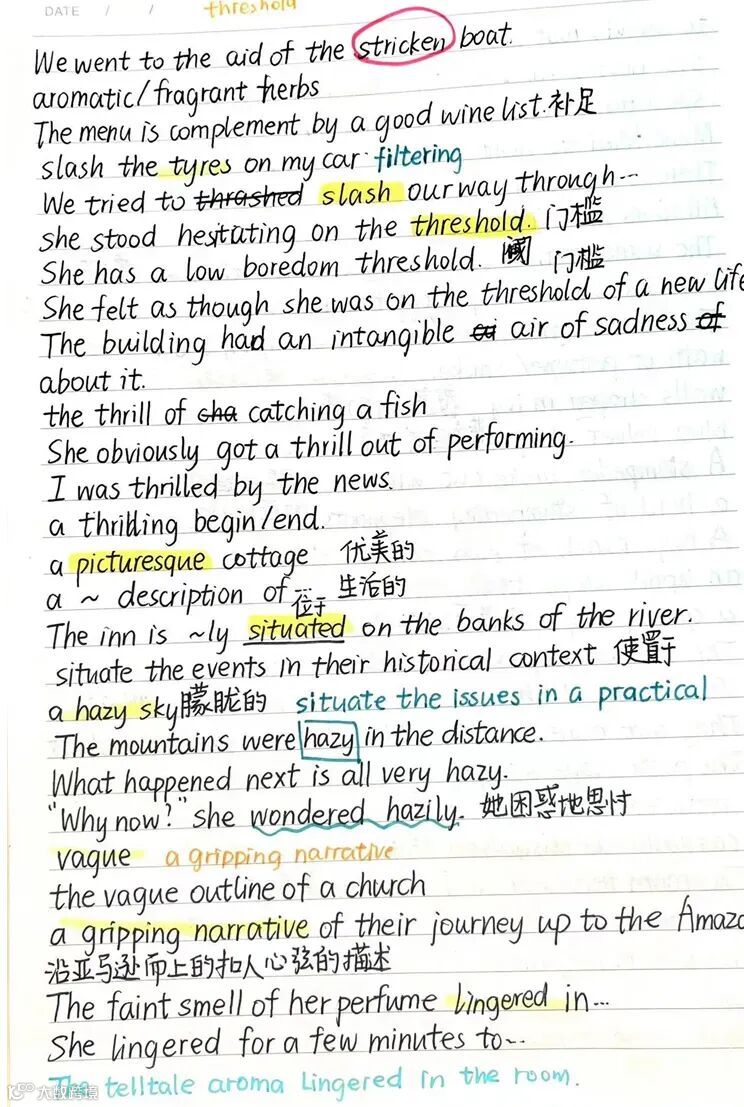 DATE / /
threshold
We went to the aid of the stricken boat.
aromatic/fragrant herbs
The menu is complement by a good wine list.补足
slash the tyres on my car filtering
We tried to thrashed slash our way through…
she stood hestating on the threshold. 门槛
She has a low boredom threshold. 阈 门槛
She felt as though she was on the threshold of a new life
The building had an intangible ai air of sadness of
about it.
the thrill of cha catching a fish
She obviously got a thrill out of performing.
I was thrilled by the news.
a thrilling begin/end.
a picturesque cottage 优美的
a ~ description of 生活的
位于
The inn is ~ly situated on the banks of the river.
situate the events in their historical context 使置于
a hazy sky朦胧的 situate the issues in a practical
The mountains were hazy in the distance.
What happened next is all very hazy.
"Why now?" she wondered hazily. 她困惑地思忖
vague a gripping narrative
the vague outline of a church
a gripping narrative of their journey up to the Amazo
沿亚马逊而上的扣人心弦的描述
The faint smell of her perfume lingered in…
She lingered for a few minutes to…
The telltale aroma lingered in the room.
大数跨境